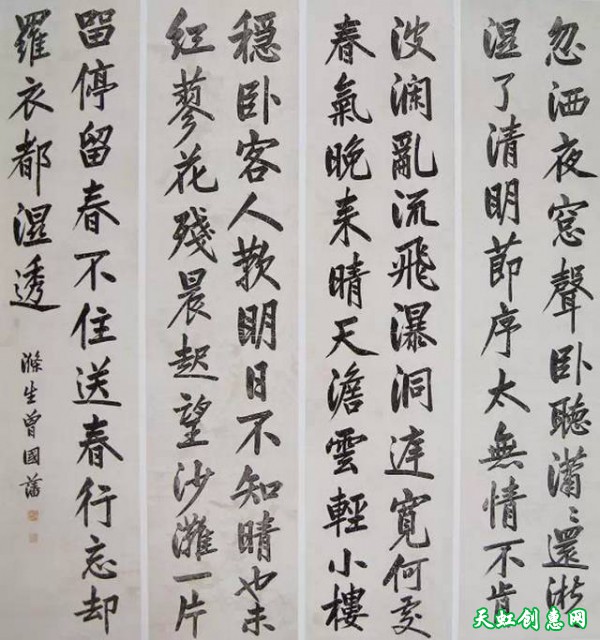 忽洒夜窓聲卧聽瀟〻還淅
湿了清明節序太無情不肯
波瀾亂流飛瀑洞庭寬何處
春氣晚來晴天澹雲輕小樓
穏卧客人歎明日不知晴也未
红蓼花殘晨起望沙灘一片
留停留春不住送春行忘却
羅衣都湿透
滌生曾國藩
天虹创惠网